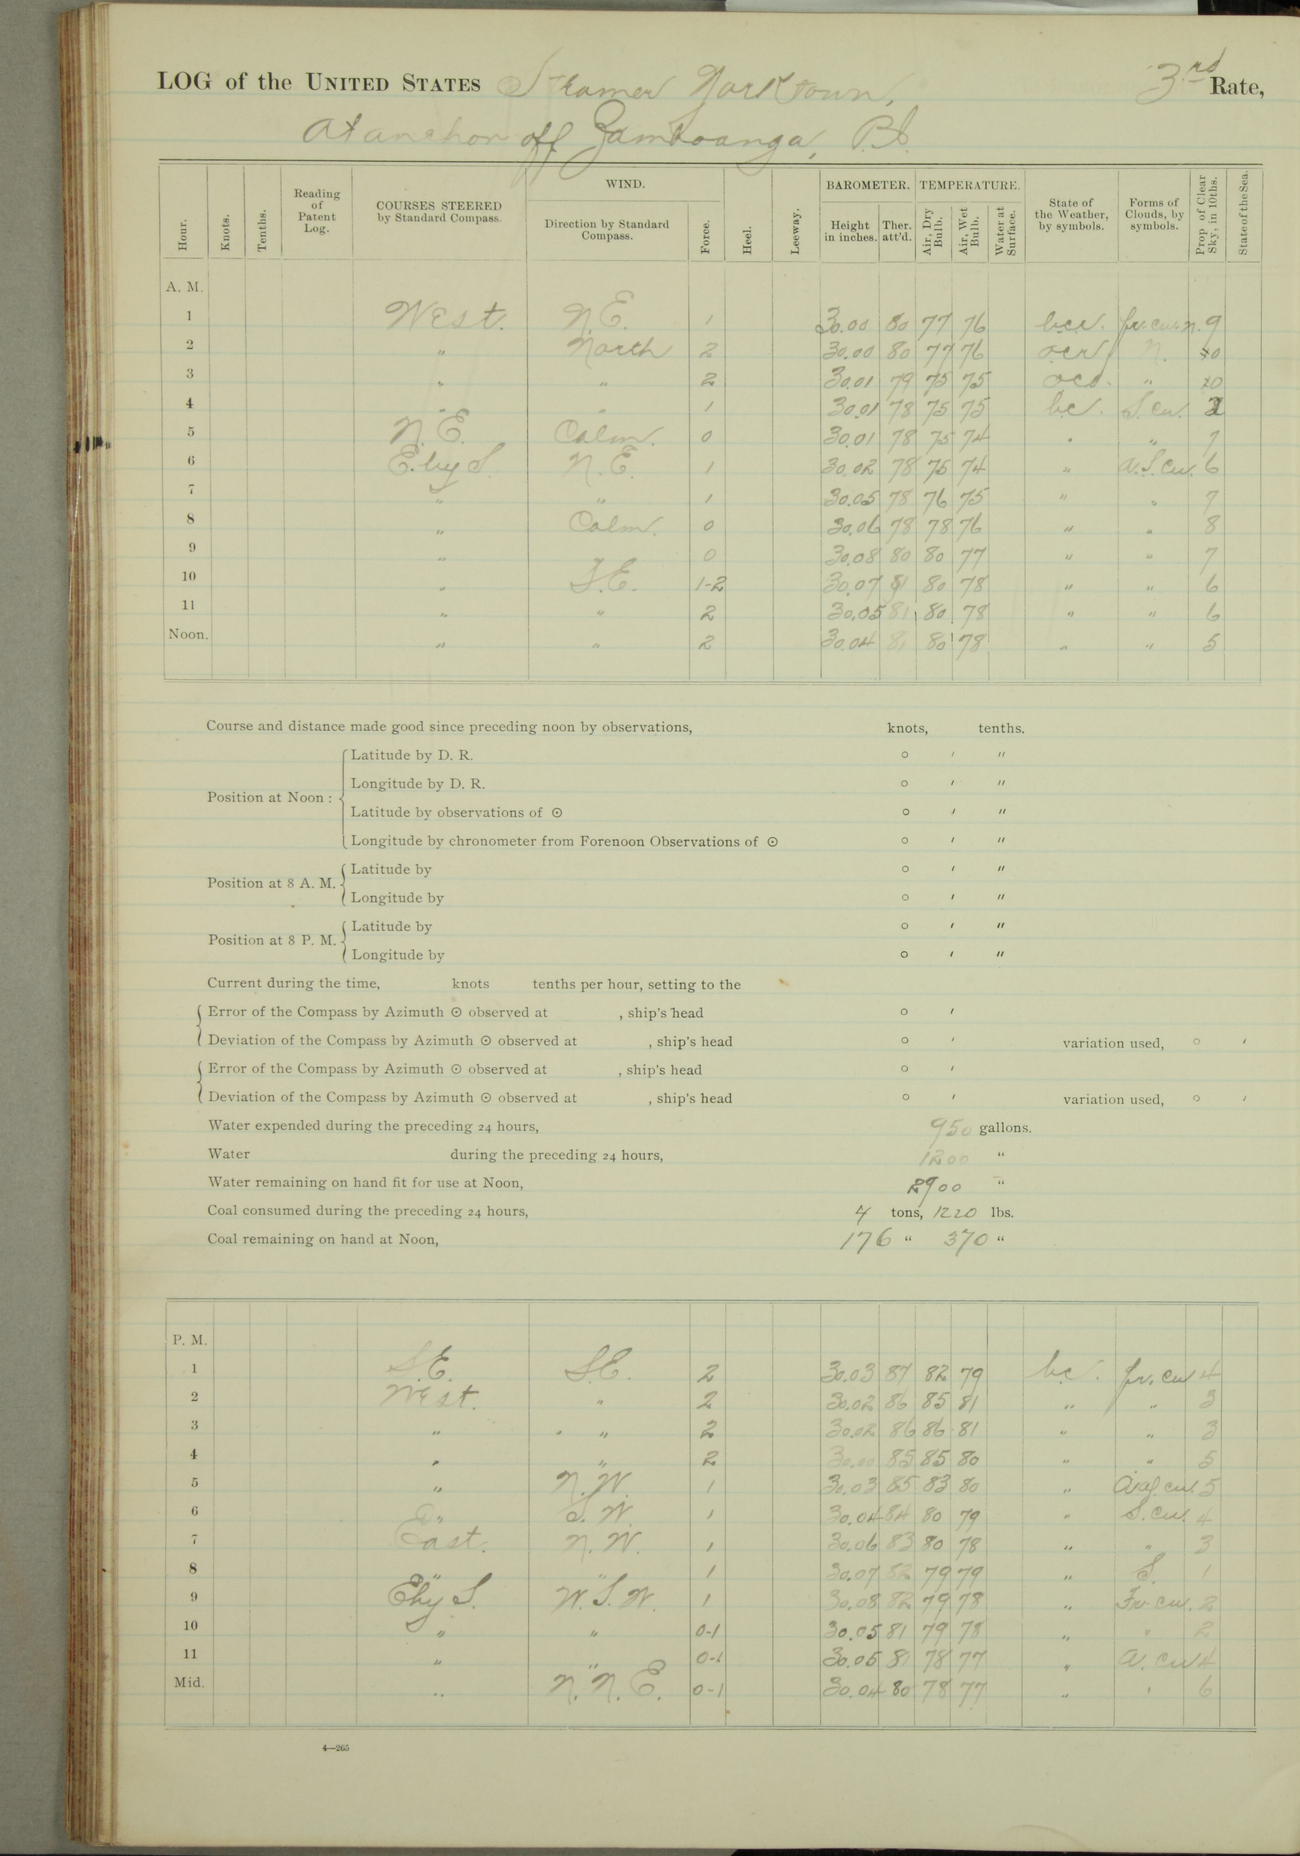 LOG of the UNITED STATES Steamer Yorktown, 3rd Rate,
At anchor off Zamboanga, P.I.
Hour. Knots. Tenths. Reading of Patent Log. COURSES STEERED by Standard Compass. WIND. Direction by Standard Compass. Force. Heel. Leeway. BAROMETER. Height in inches. Ther. att'd. TEMPERATURE. Air, Dry Bulb. Air, Wet Bulb. Water at Surface. State of the Weather, by symbols. Forms of Clouds, by symbols. Prop of Clear Sky, in 10ths. State of the Sea.
A. M.
1 West. N.E. 1 30.00 80 77 76 9
2 " North 2 30.00 80 77 76 ocr N. 0
3 " " 2 30.01 79 75 75 " 0
4 " " 1 30.01 78 75 75 bc. S.cu.
5 N.E. Calm. 0 30.01 78 75 74 " " 7
6 E. by S. N.E. 1 30.02 78 75 74 " a.S.cu. 6
7 " " 1 30.05 78 76 75 " " 7
8 " Calm. 0 30.06 78 78 76 " " 8
9 " 0 30.08 80 80 77 " " 7
10 " S.E. 1-2 30.07 81 80 78 " " 6
11 " " 2 30.05 81 80 78 " " 6
Noon. " " 2 30.04 81 80 78 " " 5
Course and distance made good since preceding noon by observations, knots, tenths.
Position at Noon :
Latitude by D. R. ° ' "
Longitude by D. R. ° ' "
Latitude by observations of ☉ ° ' "
Longitude by chronometer from Forenoon Observations of ☉ ° ' "
Position at 8 A. M.
Latitude by ° ' "
Longitude by ° ' "
Position at 8 P. M.
Latitude by ° ' "
Longitude by ° ' "
Current during the time, knots tenths per hour, setting to the
Error of the Compass by Azimuth ☉ observed at , ship's head ° '
Deviation of the Compass by Azimuth ☉ observed at , ship's head ° ' variation used, ° '
Error of the Compass by Azimuth ☉ observed at , ship's head ° '
Deviation of the Compass by Azimuth ☉ observed at , ship's head ° ' variation used, ° '
Water expended during the preceding 24 hours, 950 gallons.
Water during the preceding 24 hours, 1200 "
Water remaining on hand fit for use at Noon, 2900 "
Coal consumed during the preceding 24 hours, 4 tons, 1220 lbs.
Coal remaining on hand at Noon, 176 " 370 "
P. M.
1 S.E. S.E. 2 30.03 87 82 79 bc. fr.cu 4
2 West. " 2 30.02 86 85 81 " " 3
3 " " 2 30.02 86 86 81 " " 3
4 " " 2 30.00 85 85 80 " " 5
5 " N.W. 1 30.03 85 83 80 " 5
6 " S.W. 1 30.04 84 80 79 " S.cu. 4
7 East. N.W. 1 30.06 83 80 78 " " 3
8 " " 1 30.07 82 79 79 " S. 1
9 E by S. W.S.W. 1 30.08 82 79 78 " Fr.cu. 2
10 " " 0-1 30.05 81 79 78 " " 2
11 " " 0-1 30.05 81 78 77 " a.cu 4
Mid. " N.N.E. 0-1 30.04 80 78 77 " " 6
4—265